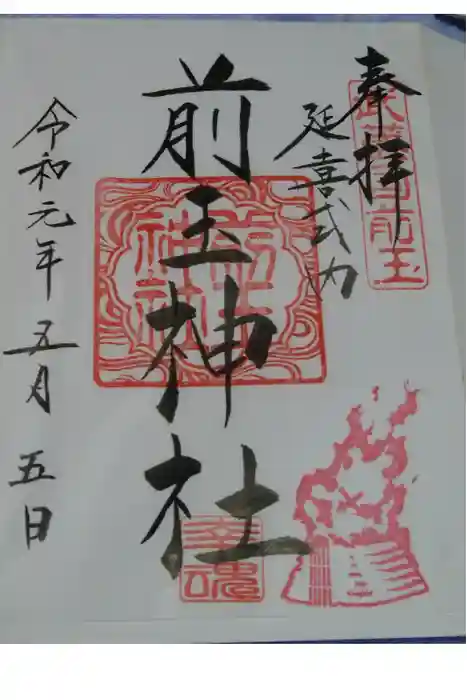 奉拝
延喜式内
前玉神社
前玉神社
幸魂
令和元年五月五日